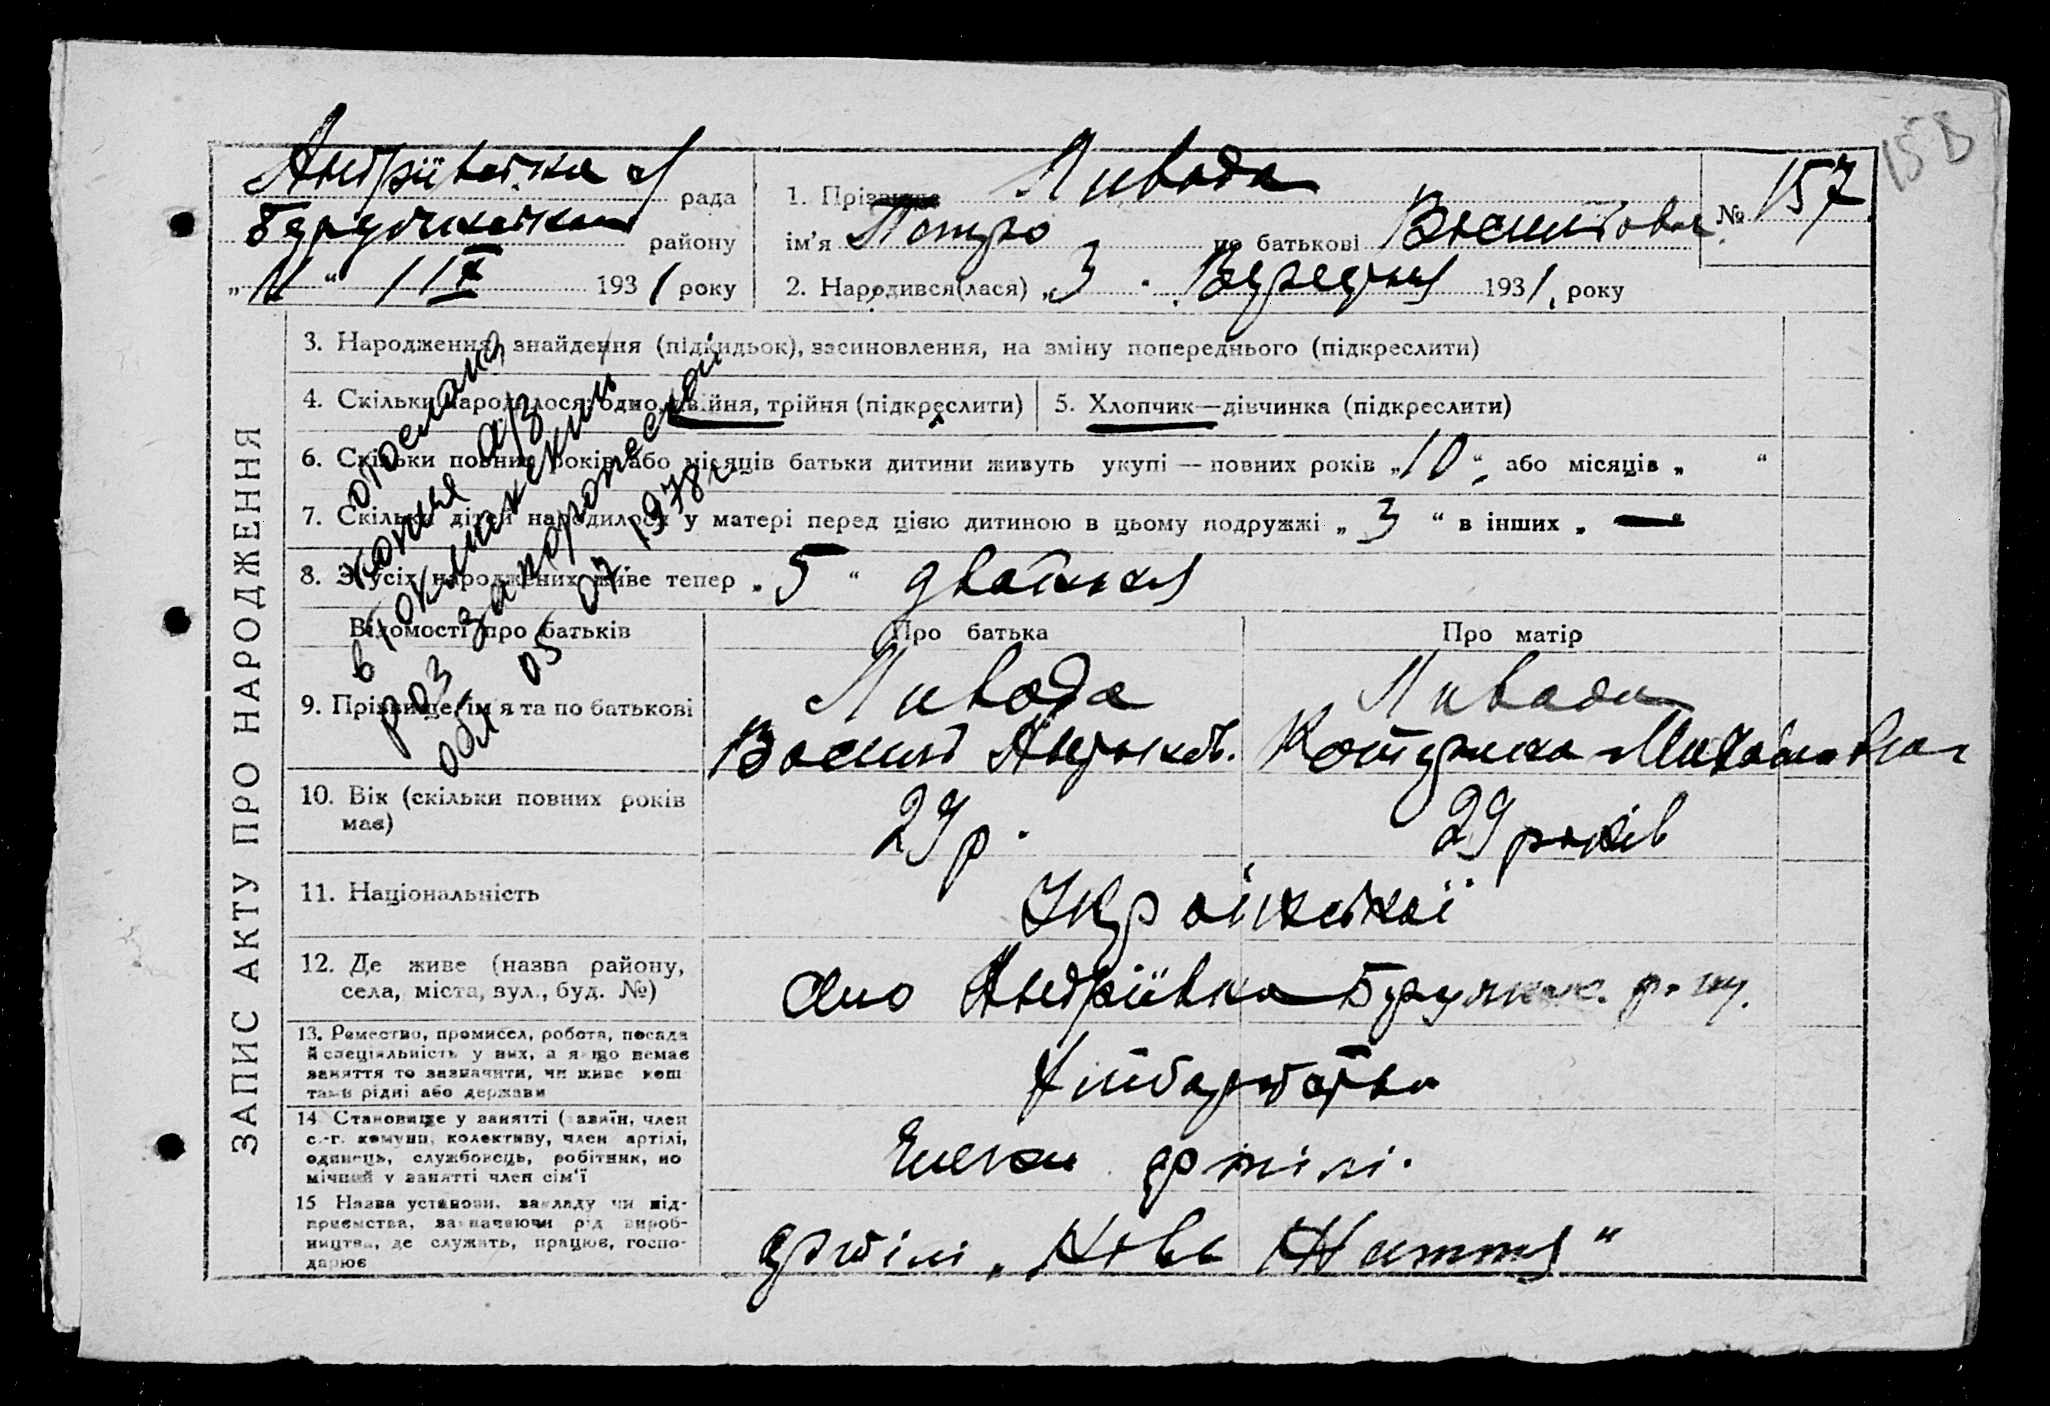 158
Андріївська с/ рада
Бердянського району
„11“ IX 1931 року
1. ПрізвищеЛивада
ім’я Петро по батькові Васильович
№ 157
2. Народився(лася) „3 Вересня 1931, року
ЗАПИС АКТУ ПРО НАРОДЖЕННЯ
3. Народження, знайдення (підкидьок), засиновлення, на зміну попереднього (підкреслити)
4. Скільки народилося: одно, двійня, трійня (підкреслити)
5. Хлопчик—дівчинка (підкреслити)
6. Скільки повних років або місяців батьки дитини живуть укупі — повних років „10“, або місяців „ “
7. Скільки дітей народилося у матері перед цією дитиною в цьому подружжі „3“ в інших „—“
8. З усіх народжених живе тепер „5“ двойня
отослана
копия а/з
в Токмакский
роз запорожской
обл 05 07 1978 г.
Відомості про батьків
Про батька
Про матір
9. Прізвище, ім’я та по батькові
Ливада
Василь
Ливада
Катерина Михайлівна
10. Вік (скільки повних років
має)
29 р.
29 років
11. Національність
Української
12. Де живе (назва району,
села, міста, вул., буд. №)
село Андріївка р-ну.
13. Ремество, промисел, робота, посада
й спеціяльність у них, а якщо немає
заняття то зазначити, чи живе кош
тами рідні або держави
Хліборобство
14 Становище у занятті (хазяїн, член
с.-г. комуни, колективу, член артілі,
одинець, службовець, робітник, по
мічний у занятті член сім’ї
Члени артілі.
15 Назва установи, закладу чи під-
приємства, зазначаючи рід вироб-
ництва, де служить, працює, госпо-
дарює
артілі „Нове Життя“